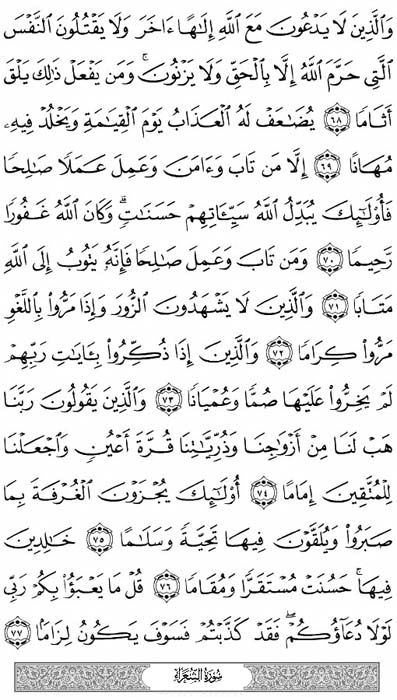 وَالَّذِينَ لَا يَدْعُونَ مَعَ اللَّهِ إِلَـٰهًا ءَاخَرَ وَلَا يَقْتُلُونَ النَّفْسَ
الَّتِي حَرَّمَ اللَّهُ إِلَّا بِالْحَقِّ وَلَا يَزْنُونَ ۚ وَمَن يَفْعَلْ ذَٰلِكَ يَلْقَ
أَثَامًا ٦٨ يُضَـٰعَفْ لَهُ الْعَذَابُ يَوْمَ الْقِيَـٰمَةِ وَيَخْلُدْ فِيهِۦ
مُهَانًا ٦٩ إِلَّا مَن تَابَ وَءَامَنَ وَعَمِلَ عَمَلًا صَـٰلِحًا
فَأُو۟لَـٰٓئِكَ يُبَدِّلُ اللَّهُ سَيِّـَٔاتِهِمْ حَسَنَـٰتٍ ۗ وَكَانَ اللَّهُ غَفُورًا
رَّحِيمًا ٧٠ وَمَن تَابَ وَعَمِلَ صَـٰلِحًا فَإِنَّهُۥ يَتُوبُ إِلَى اللَّهِ
مَتَابًا ٧١ وَالَّذِينَ لَا يَشْهَدُونَ الزُّورَ وَإِذَا مَرُّوا۟ بِاللَّغْوِ
مَرُّوا۟ كِرَامًا ٧٢ وَالَّذِينَ إِذَا ذُكِّرُوا۟ بِـَٔايَـٰتِ رَبِّهِمْ
لَمْ يَخِرُّوا۟ عَلَيْهَا صُمًّا وَعُمْيَانًا ٧٣ وَالَّذِينَ يَقُولُونَ رَبَّنَا
هَبْ لَنَا مِنْ أَزْوَٰجِنَا وَذُرِّيَّـٰتِنَا قُرَّةَ أَعْيُنٍ وَاجْعَلْنَا
لِلْمُتَّقِينَ إِمَامًا ٧٤ أُو۟لَـٰٓئِكَ يُجْزَوْنَ الْغُرْفَةَ بِمَا
صَبَرُوا۟ وَيُلَقَّوْنَ فِيهَا تَحِيَّةً وَسَلَـٰمًا ٧٥ خَـٰلِدِينَ
فِيهَا ۚ حَسُنَتْ مُسْتَقَرًّا وَمُقَامًا ٧٦ قُلْ مَا يَعْبَؤُا۟ بِكُمْ رَبِّي
لَوْلَا دُعَآؤُكُمْ ۖ فَقَدْ كَذَّبْتُمْ فَسَوْفَ يَكُونُ لِزَامًۢا ٧٧
سُورَةُ الشُّعَرَاءِ